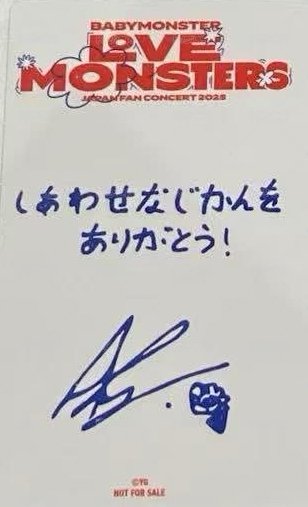 BABYMONSTER
LOVE
MONSTERS
JAPAN FAN CONCERT 2025
しあわせなじかんを
ありがとう!
©YG
NOT FOR SALE